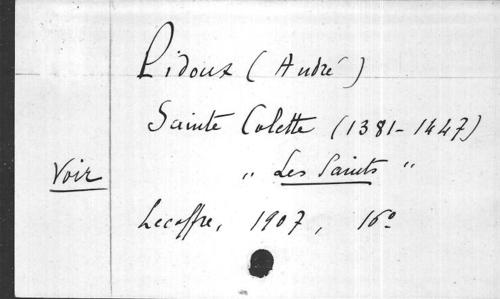 Pidoux (André)
Sainte Colette (1381-1447)
Voir
" Les Saints "
Lecoffre, 1907, 16º